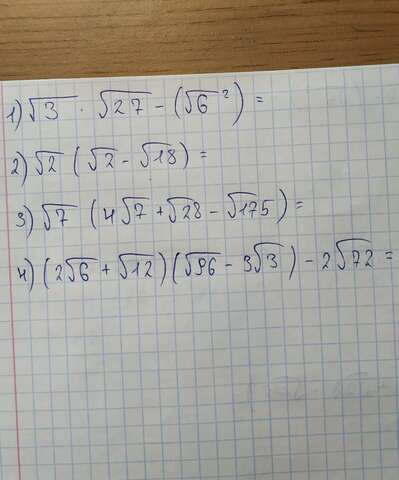 1) √3 · √27 - (√6²) =
2) √2 (√2 - √18) =
3) √7 (4√7 + √28 - √175) =
4) (2√6 + √12)(√96 - 3√3) - 2√72 =